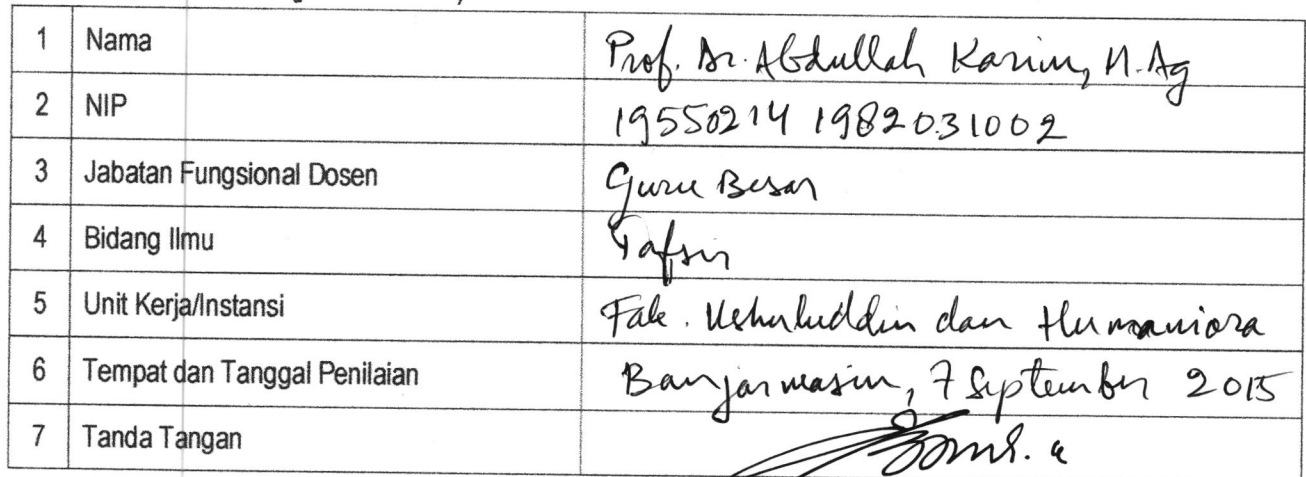 1 Nama Prof. Dr. Abdullah Karim, M.Ag
2 NIP 19550214 198203 1002
3 Jabatan Fungsional Dosen Guru Besar
4 Bidang Ilmu Tafsir
5 Unit Kerja/Instansi Fak. Ushuluddin dan Humaniora
6 Tempat dan Tanggal Penilaian Banjarmasin, 7 September 2015
7 Tanda Tangan